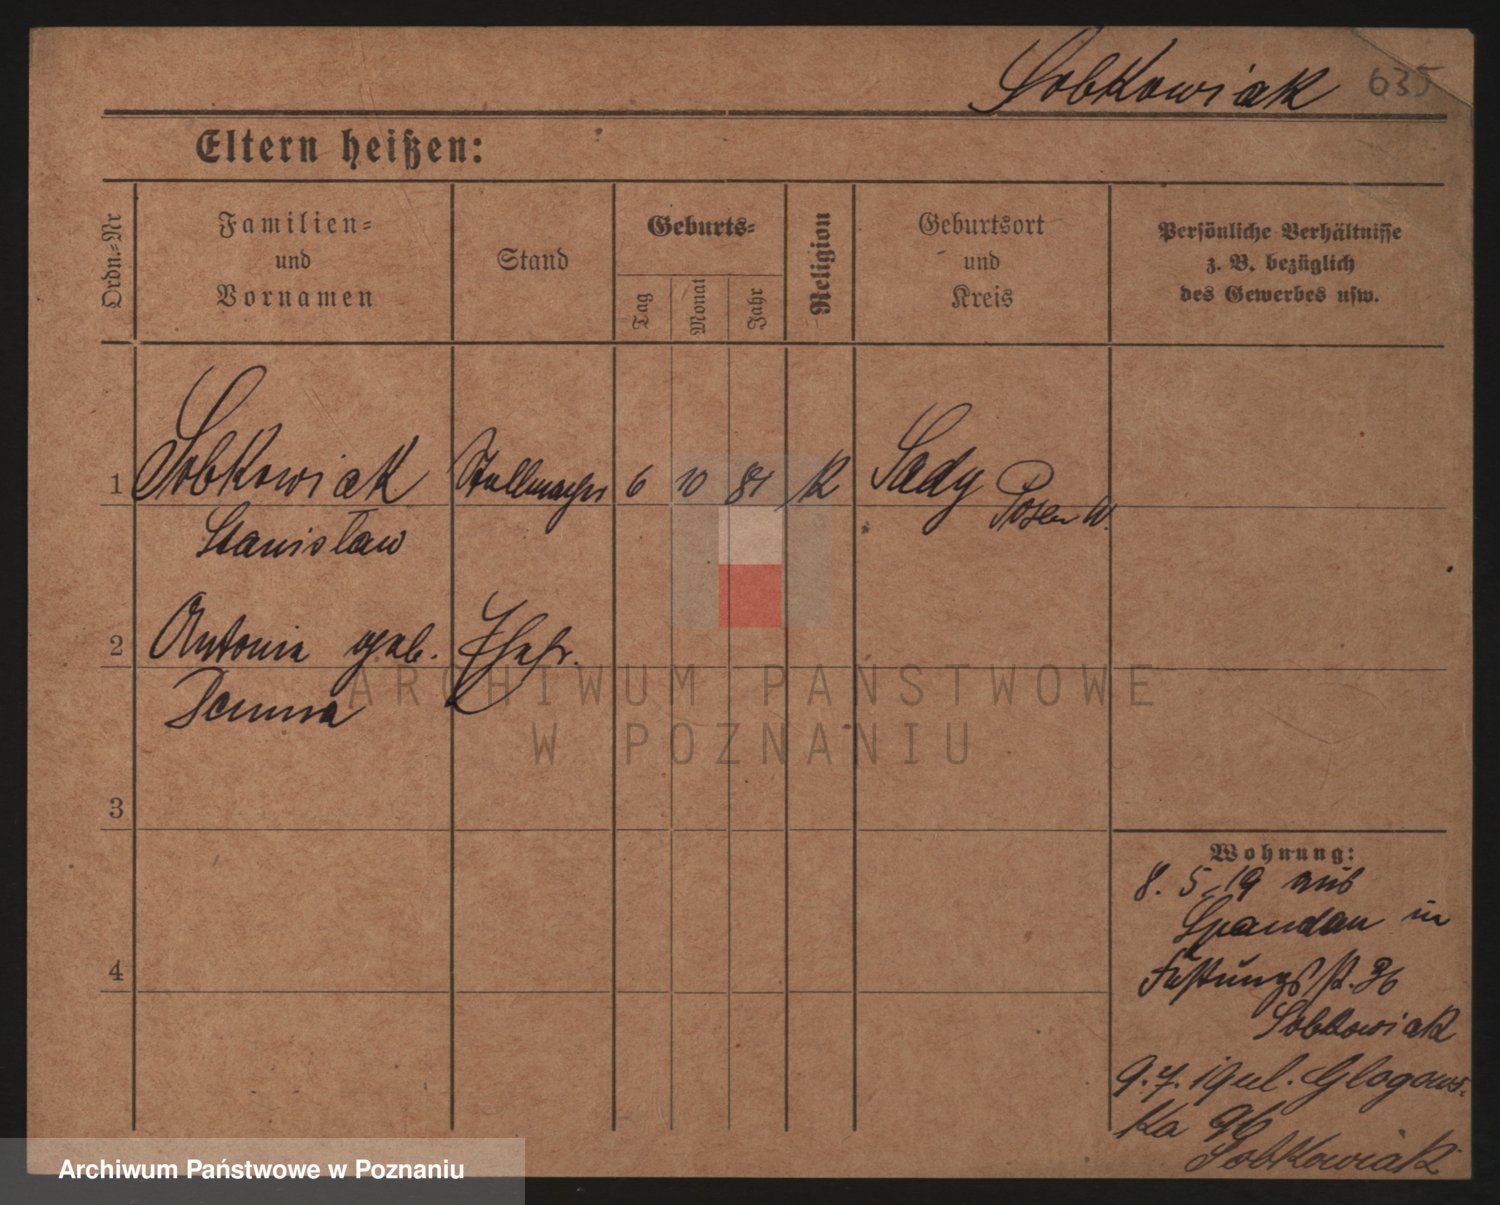 Sobkowiak 635
Eltern heißen:
Ordn.-Nr
Familien-
und
Vornamen
Stand
Geburts-
Tag
Monat
Jahr
Religion
Geburtsort
und
Kreis
Persönliche Verhältnisse
z. B. bezüglich
des Gewerbes usw.
1 Sobkowiak Stellmacher 6 10 81 K Sady
Posen W.
Stanisław
2 Antonie geb. Ehefr.
3
4
Wohnung:
8. 5. 19 aus
Spandau in
36
Sobkowiak
9. 7. 19 ul. Glogows-
ka 96
Sobkowiak
ARCHIWUM PAŃSTWOWE
W POZNANIU
Archiwum Państwowe w Poznaniu